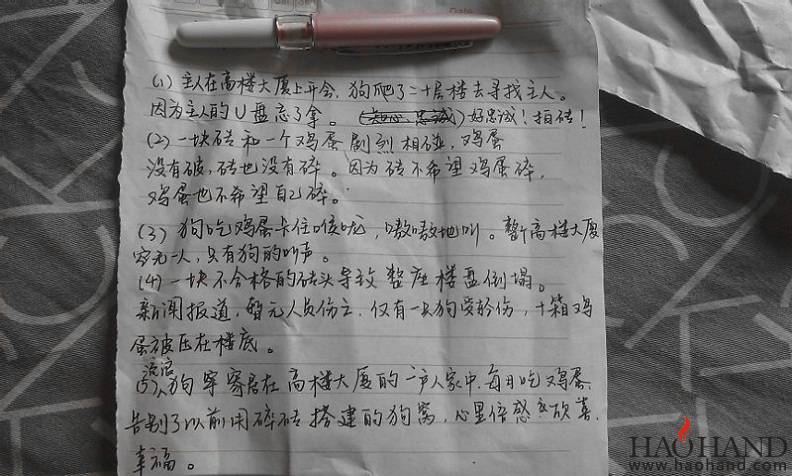 (1) 主人在高楼大厦上开会,狗爬了二十层楼去寻找主人。
因为主人的U盘忘了拿。(忠诚)好忠诚!拍砖!
(2) 一块砖和一个鸡蛋剧烈相碰,鸡蛋
没有破,砖也没有碎。因为砖不希望鸡蛋碎,
鸡蛋也不希望自己碎。
(3) 狗吃鸡蛋卡住喉咙,嗷嗷地叫。整个高楼大厦
空无一人,只有狗的叫声。
(4) 一块不合格的砖头导致整座楼盘倒塌。
新闻报道,暂无人员伤亡,仅有一只狗受轻伤,十箱鸡
蛋被压在楼底。
流浪
(5) 狗寄居在高楼大厦的一户人家中,每日吃鸡蛋,
告别了以前用碎砖搭建的狗窝,心里倍感
幸福。
HAOHAND
www.haohand.com